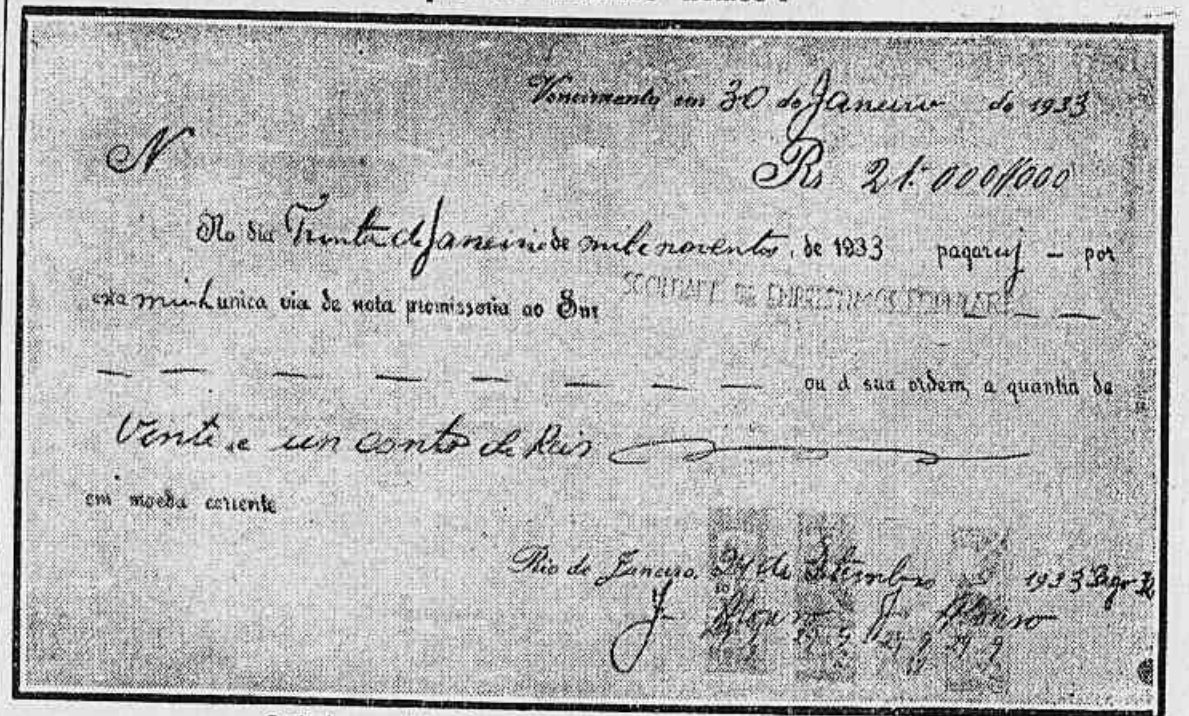 Vencimento em 30 de Janeiro de 1933
N Rs 21:000$000
No dia Trinta de Janeiro de mil e noventos, de 1933 pagarej — por
esta minh unica via de nota promissoria ao Snr SOCIEDADE DE EMPRESTIMOS
— — — — — — — — ou á sua ordem, a quantia de
Vente e un conto de Reis
em moeda corrente
Rio de Janeiro, 24 de Setembro 1933 Pago 32
J. Afonso J. Afonso
29 9 29 9